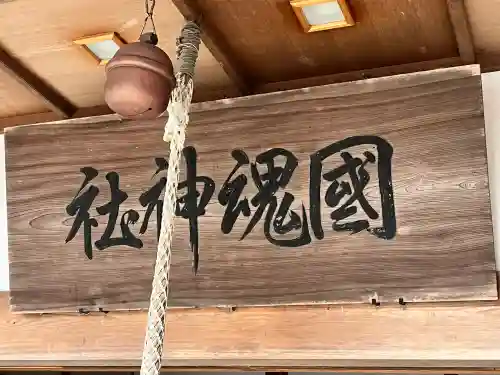 國魂神社